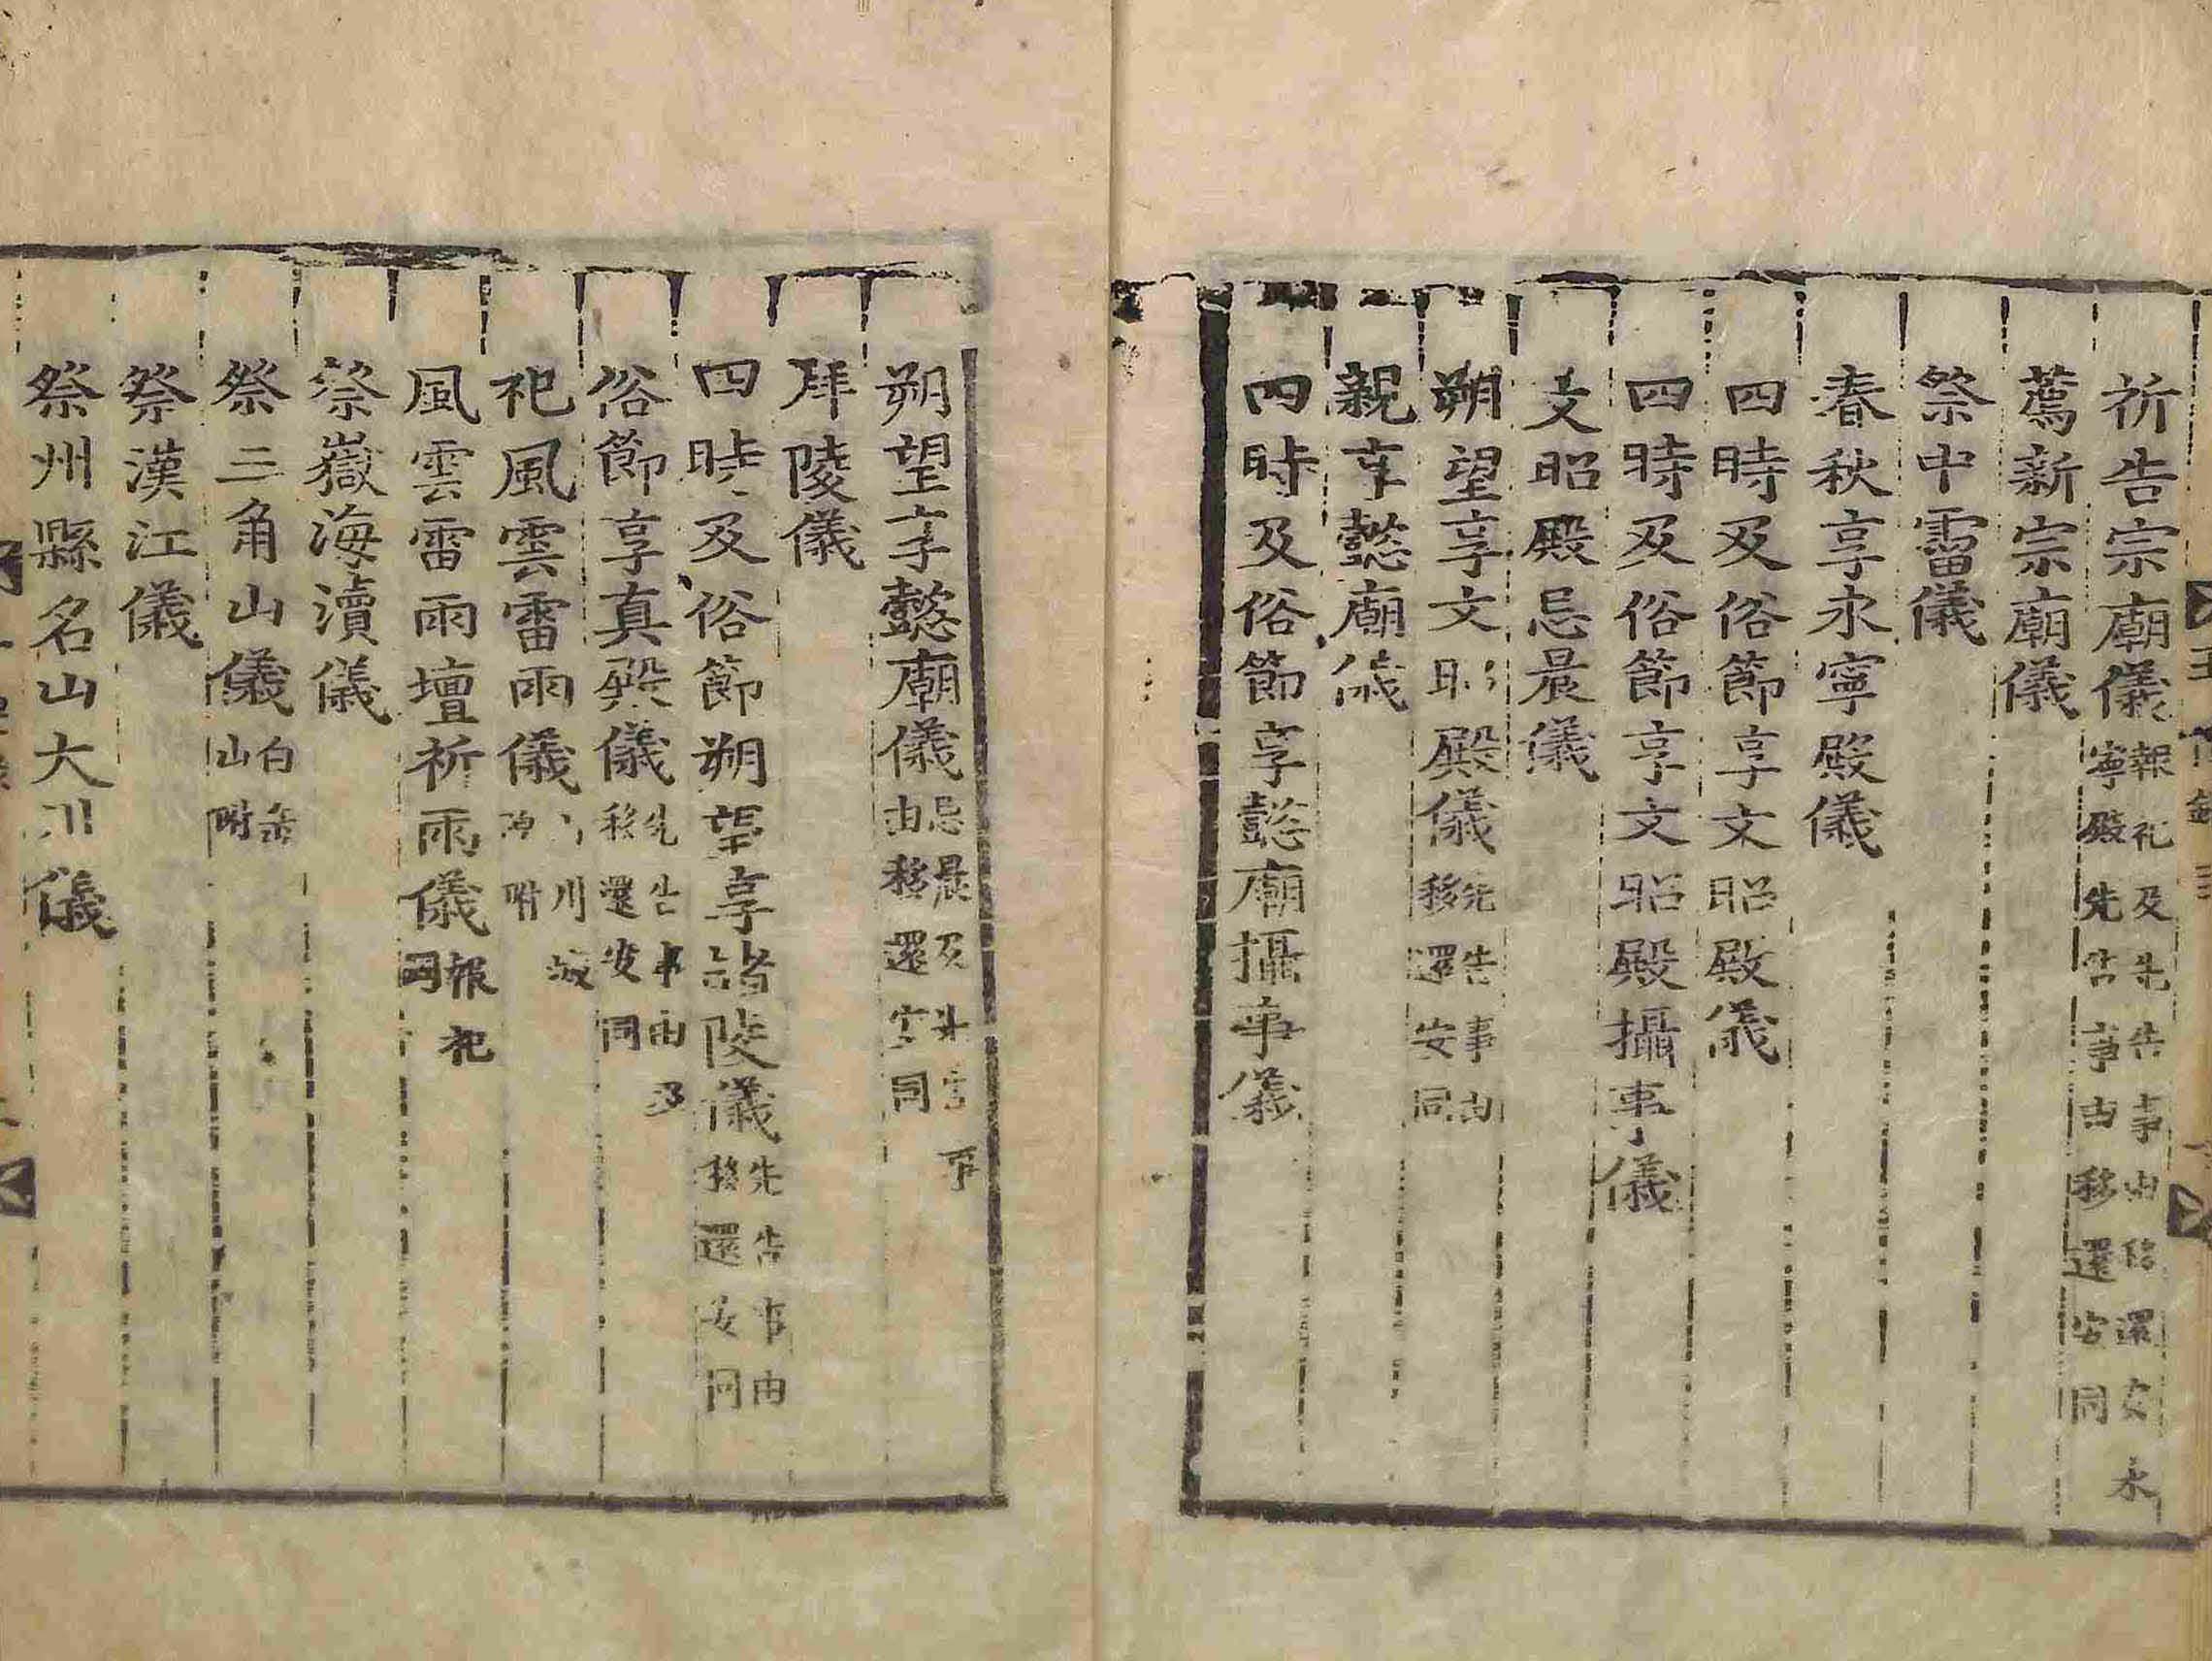 祈告宗廟儀報祀及先告事由移還安永寧殿先告事由移還安同
薦新宗廟儀
祭中霤儀
春秋享永寧殿儀
四時及俗節享文昭殿儀
四時及俗節享文昭殿攝事儀
文昭殿忌晨儀
朔望享文昭殿儀先告事由移還安同
親享懿廟儀
四時及俗節享懿廟攝事儀
朔望享懿廟儀忌晨及先告事由移還安同
拜陵儀
四時及俗節朔望享諸陵儀先告事由移還安同
俗節享真殿儀先告事由及移還安同
祀風雲雷雨儀山川城隍附
風雲雷雨壇祈雨儀報祀同
祭嶽海瀆儀
祭三角山儀白岳山附
祭漢江儀
祭州縣名山大川儀